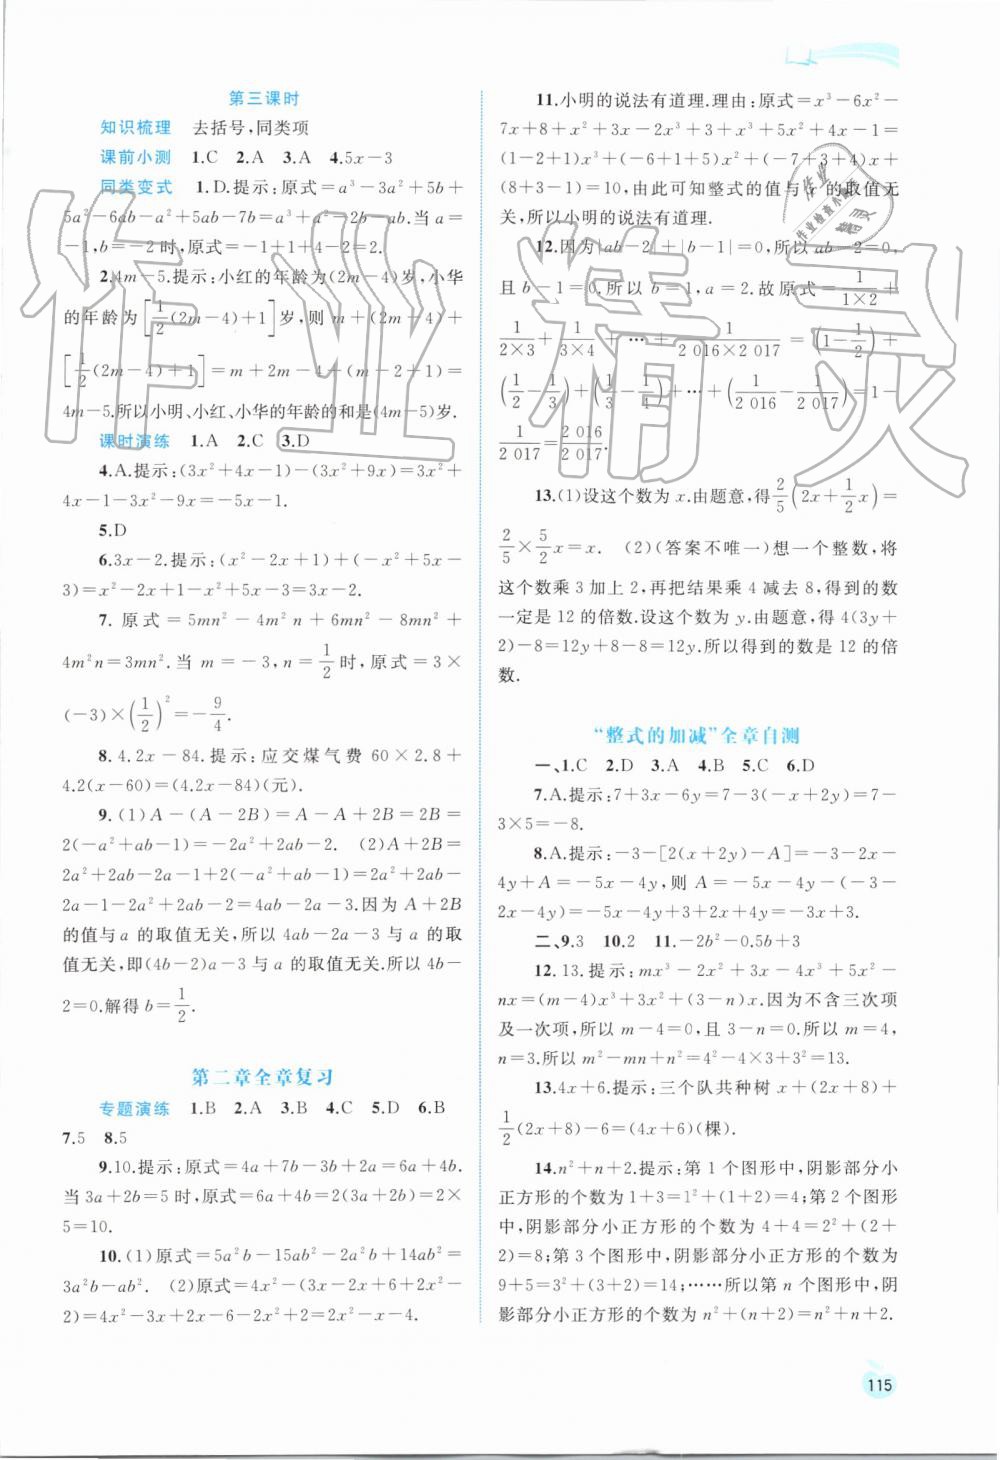 第三课时
知识梳理 去括号,同类项
课前小测 1.C 2.A 3.A 4.5x-3
同类变式 1.D.提示:原式=a³-3a²+5b+
5a²-6ab-a²+5ab-7b=a³+a²-2b-ab.当a=
-1,b=-2时,原式=-1+1+4-2=2.
2.4m-5.提示:小红的年龄为(2m-4)岁,小华
的年龄为[1/2(2m-4)+1]岁,则m+(2m-4)+
[1/2(2m-4)+1]=m+2m-4+(m-2+1)=
4m-5.所以小明、小红、小华的年龄的和是(4m-5)岁.
课时演练 1.A 2.C 3.D
4.A.提示:(3x²+4x-1)-(3x²+9x)=3x²+
4x-1-3x²-9x=-5x-1.
5.D
6.3x-2.提示:(x²-2x+1)+(-x²+5x-
3)=x²-2x+1-x²+5x-3=3x-2.
7.原式=5mn²-4m²n+6mn²-8mn²+
4m²n=3mn².当m=-3,n=1/2时,原式=3×
(-3)×(1/2)²=-9/4.
8.4.2x-84.提示:应交煤气费60×2.8+
4.2(x-60)=(4.2x-84)(元).
9.(1)A-(A-2B)=A-A+2B=2B=
2(-a²+ab-1)=-2a²+2ab-2. (2)A+2B=
2a²+2ab-2a-1+2(-a²+ab-1)=2a²+2ab-
2a-1-2a²+2ab-2=4ab-2a-3.因为A+2B
的值与a的取值无关,所以4ab-2a-3与a的取
值无关,即(4b-2)a-3与a的取值无关.所以4b-
2=0.解得b=1/2.
第二章全章复习
专题演练 1.B 2.A 3.B 4.C 5.D 6.B
7.5 8.5
9.10.提示:原式=4a+7b-3b+2a=6a+4b.
当3a+2b=5时,原式=6a+4b=2(3a+2b)=2×
5=10.
10.(1)原式=5a²b-15ab²-2a²b+14ab²=
3a²b-ab². (2)原式=4x²-(3x-2x+6+2x²-
2x)=4x²-3x+2x-6-2x²+2x=2x²+x-6.
11.小明的说法有道理.理由:原式=x³-6x²-
7x+8+x²+3x-2x³+3+x³+5x²+4x-1=
(1-2+1)x³+(-6+1+5)x²+(-7+3+4)x+
(8+3-1)=10,由此可知整式的值与x的取值无
关,所以小明的说法有道理.
12.因为|ab-2|+|b-1|=0,所以ab-2=0,
且b-1=0.所以b=1,a=2.故原式=1/(1×2)+
1/(2×3)+1/(3×4)+…+1/(2 016×2 017)=(1-1/2)+
(1/2-1/3)+(1/3-1/4)+…+(1/2 016-1/2 017)=1-
1/2 017=2 016/2 017.
13.(1)设这个数为x.由题意,得2/5(2x+1/2x)=
2/5×5/2x=x. (2)(答案不唯一)想一个整数,将
这个数乘3加上2,再把结果乘4减去8,得到的数
一定是12的倍数.设这个数为y.由题意,得4(3y+
2)-8=12y+8-8=12y.所以得到的数是12的倍
数.
“整式的加减”全章自测
一、1.C 2.D 3.A 4.B 5.C 6.D
7.A.提示:7+3x-6y=7-3(-x+2y)=7-
3×5=-8.
8.A.提示:-3-[2(x+2y)-A]=-3-2x-
4y+A=-5x-4y,则A=-5x-4y-(-3-
2x-4y)=-5x-4y+3+2x+4y=-3x+3.
二、9.3 10.2 11.-2b²-0.5b+3
12.13.提示:mx³-2x²+3x-4x³+5x²-
nx=(m-4)x³+3x²+(3-n)x.因为不含三次项
及一次项,所以m-4=0,且3-n=0.所以m=4,
n=3.所以m²-mn+n²=4²-4×3+3²=13.
13.4x+6.提示:三个队共种树x+(2x+8)+
1/2(2x+8)-6=(4x+6)(棵).
14.n²+n+2.提示:第1个图形中,阴影部分小
正方形的个数为1+3=1²+(1+2)=4;第2个图形
中,阴影部分小正方形的个数为4+4=2²+(2+
2)=8;第3个图形中,阴影部分小正方形的个数为
9+5=3²+(3+2)=14;……所以第n个图形中,阴
影部分小正方形的个数为n²+(n+2)=n²+n+2.
115
作业精灵
作业检查小